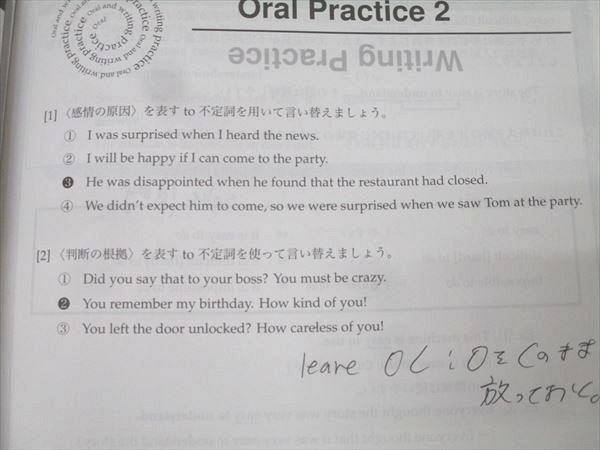 Oral Practice 2
Oral and writing practice
Writing Practice
[1] 〈感情の原因〉を表す to 不定詞を用いて言い替えましょう。
① I was surprised when I heard the news.
② I will be happy if I can come to the party.
❸ He was disappointed when he found that the restaurant had closed.
④ We didn't expect him to come, so we were surprised when we saw Tom at the party.
[2] 〈判断の根拠〉を表す to 不定詞を使って言い替えましょう。
① Did you say that to your boss? You must be crazy.
❷ You remember my birthday. How kind of you!
③ You left the door unlocked? How careless of you!
leave O C : OをCのまま
放っておく。